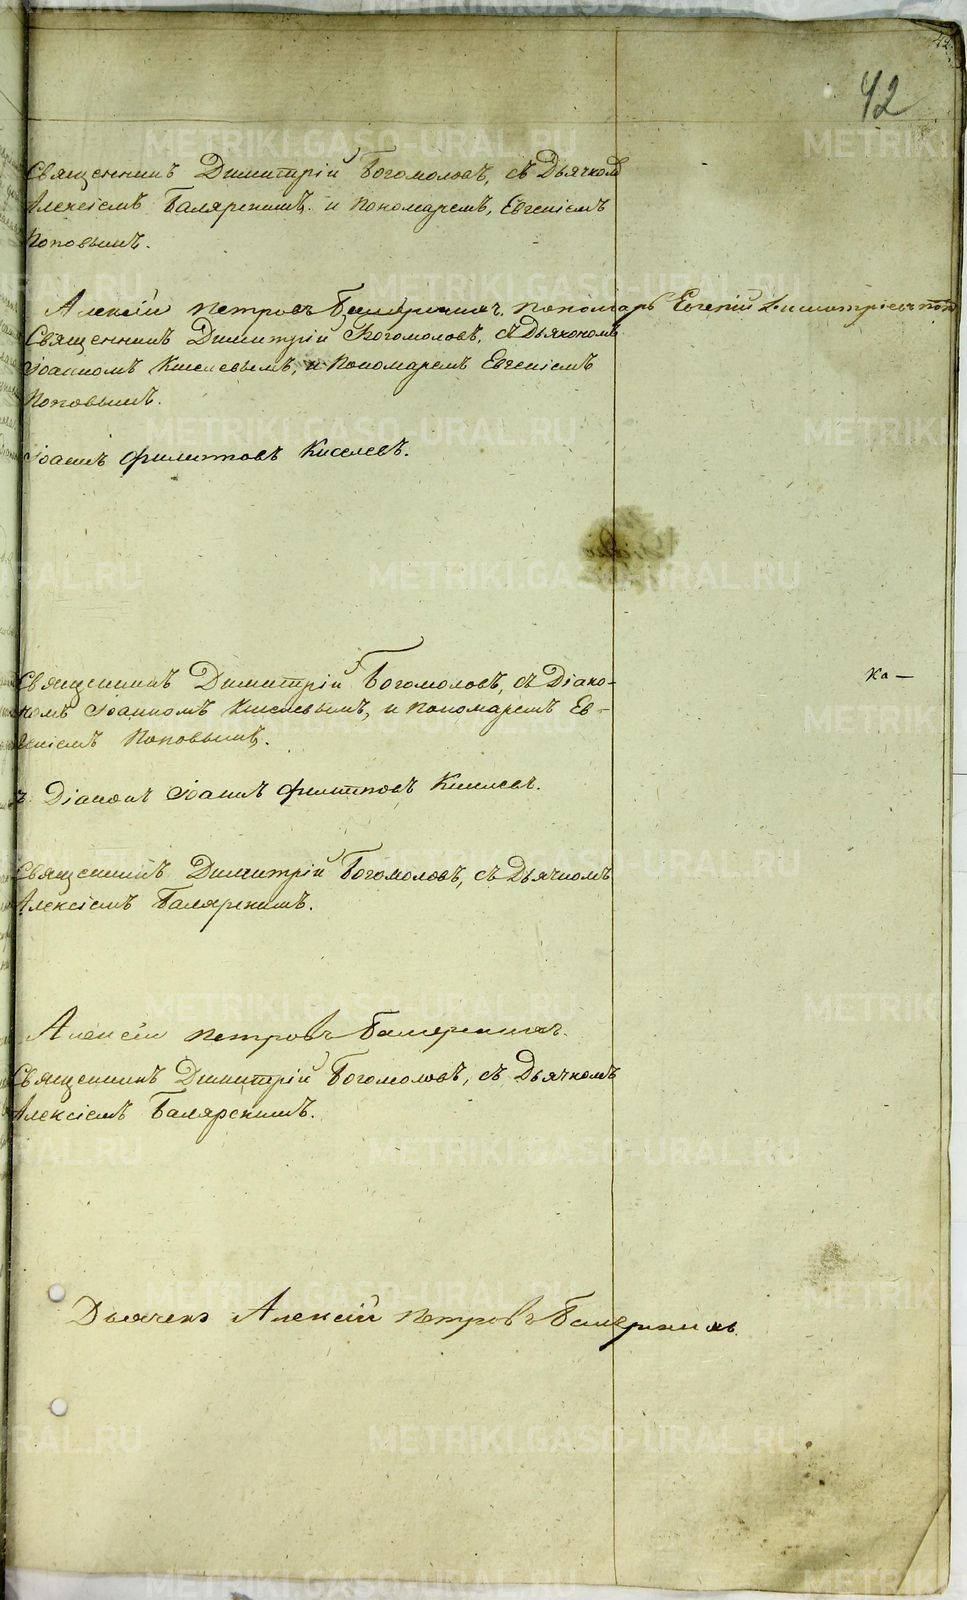 42
Священникъ Димитрій Богомоловъ, съ Дьячкомъ
Алексіемъ Балярскимъ и Пономаремъ, Евгеніемъ
Поповымъ.
Алексій Петровъ Пономарь Евгеній Димитріевъ
Священникъ Димитрій Богомоловъ, съ Дьякономъ
Іоанномъ Киселевымъ, и Пономаремъ Евгеніемъ
Поповымъ.
Іоаннъ Филиповъ Киселевъ.
Священникъ Димитрій Богомоловъ, съ Діако-
номъ Іоанномъ Киселевымъ, и Пономаремъ Ев-
геніемъ Поповымъ.
Ка—
Діаконъ Іоаннъ Филиповъ Киселевъ.
Священникъ Димитрій Богомоловъ, съ Дьячкомъ
Алексіемъ Балярскимъ.
Алексій Петровъ
Священникъ Димитрій Богомоловъ, съ Дьячкомъ
Алексіемъ Балярскимъ.
Дьячекъ Алексій Петровъ
METRIKI.GASO-URAL.RU